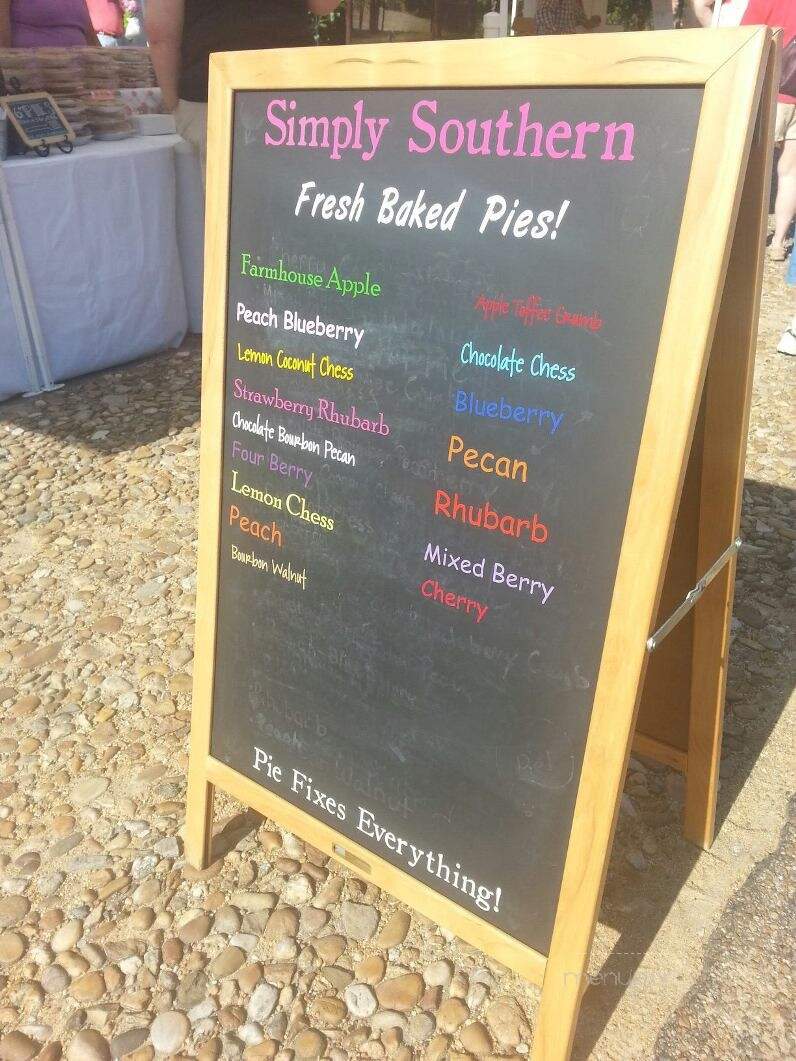 Simply Southern
Fresh Baked Pies!
Farmhouse Apple
Peach Blueberry
Lemon Coconut Chess
Strawberry Rhubarb
Chocolate Bourbon Pecan
Four Berry
Lemon Chess
Peach
Bourbon Walnut
Apple Toffee Crumb
Chocolate Chess
Blueberry
Pecan
Rhubarb
Mixed Berry
Cherry
Pie Fixes Everything!